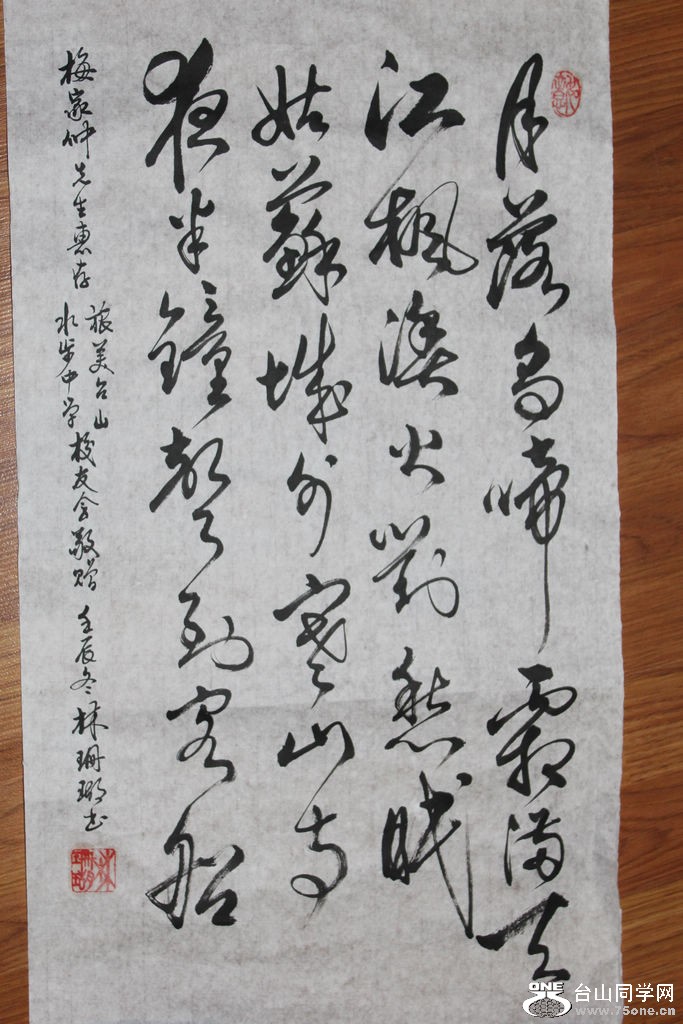 月落烏啼霜滿天
江楓漁火對愁眠
姑蘇城外寒山寺
夜半鐘聲到客船
梅家仲先生惠存
旅美台山
水步中学校友会敬赠 壬辰冬 林珊瑚书
ONE
台山同学网
www.75one.cn